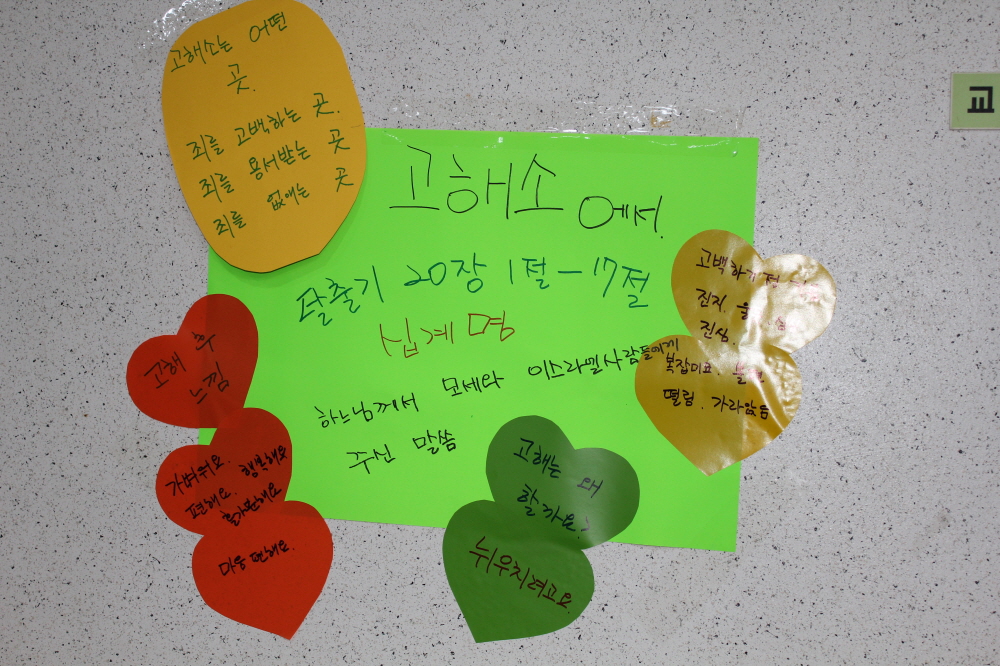 고해소는 어떤
곳.
죄를 고백하는 곳.
죄를 용서받는 곳
죄를 없애는 곳
고해소에서.
탈출기 20장 1절 - 17절
십계명
하느님께서 모세와 이스라엘사람들에게
주신 말씀
고백하기전
진지. 울
진심.
복잡미묘. 불편
떨림. 가라앉음
고해 후
느낌
가벼워요.
편해요. 행복해요
홀가분해요
마음 편해요.
고해는 왜
할까요?
뉘우치려고요.
교